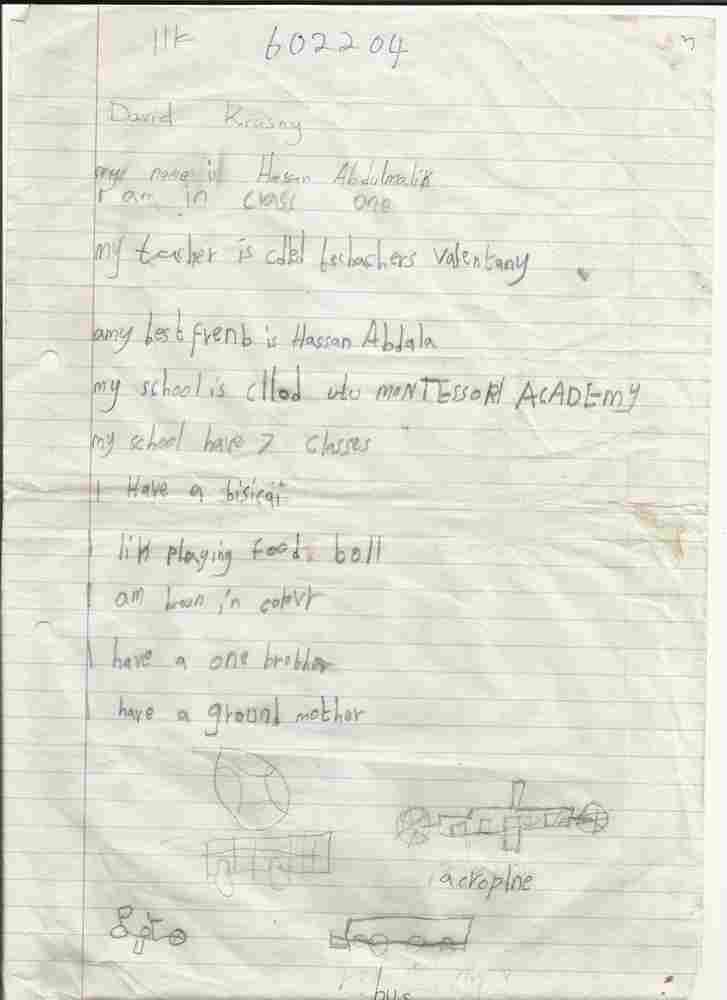 602204
David Krasny
my name is Hassan Abdulmalik
I am in class one
my teacher is cllel techachers valentany
amy best frenb is Hassan Abdala
my school is Cllod utu MONTESSORI ACADEMY
my school have 7 Classes
I Have a bisicai
I lik playing food ball
I am boun in colour
I have a one brother
I have a ground mother
acroplne
bus